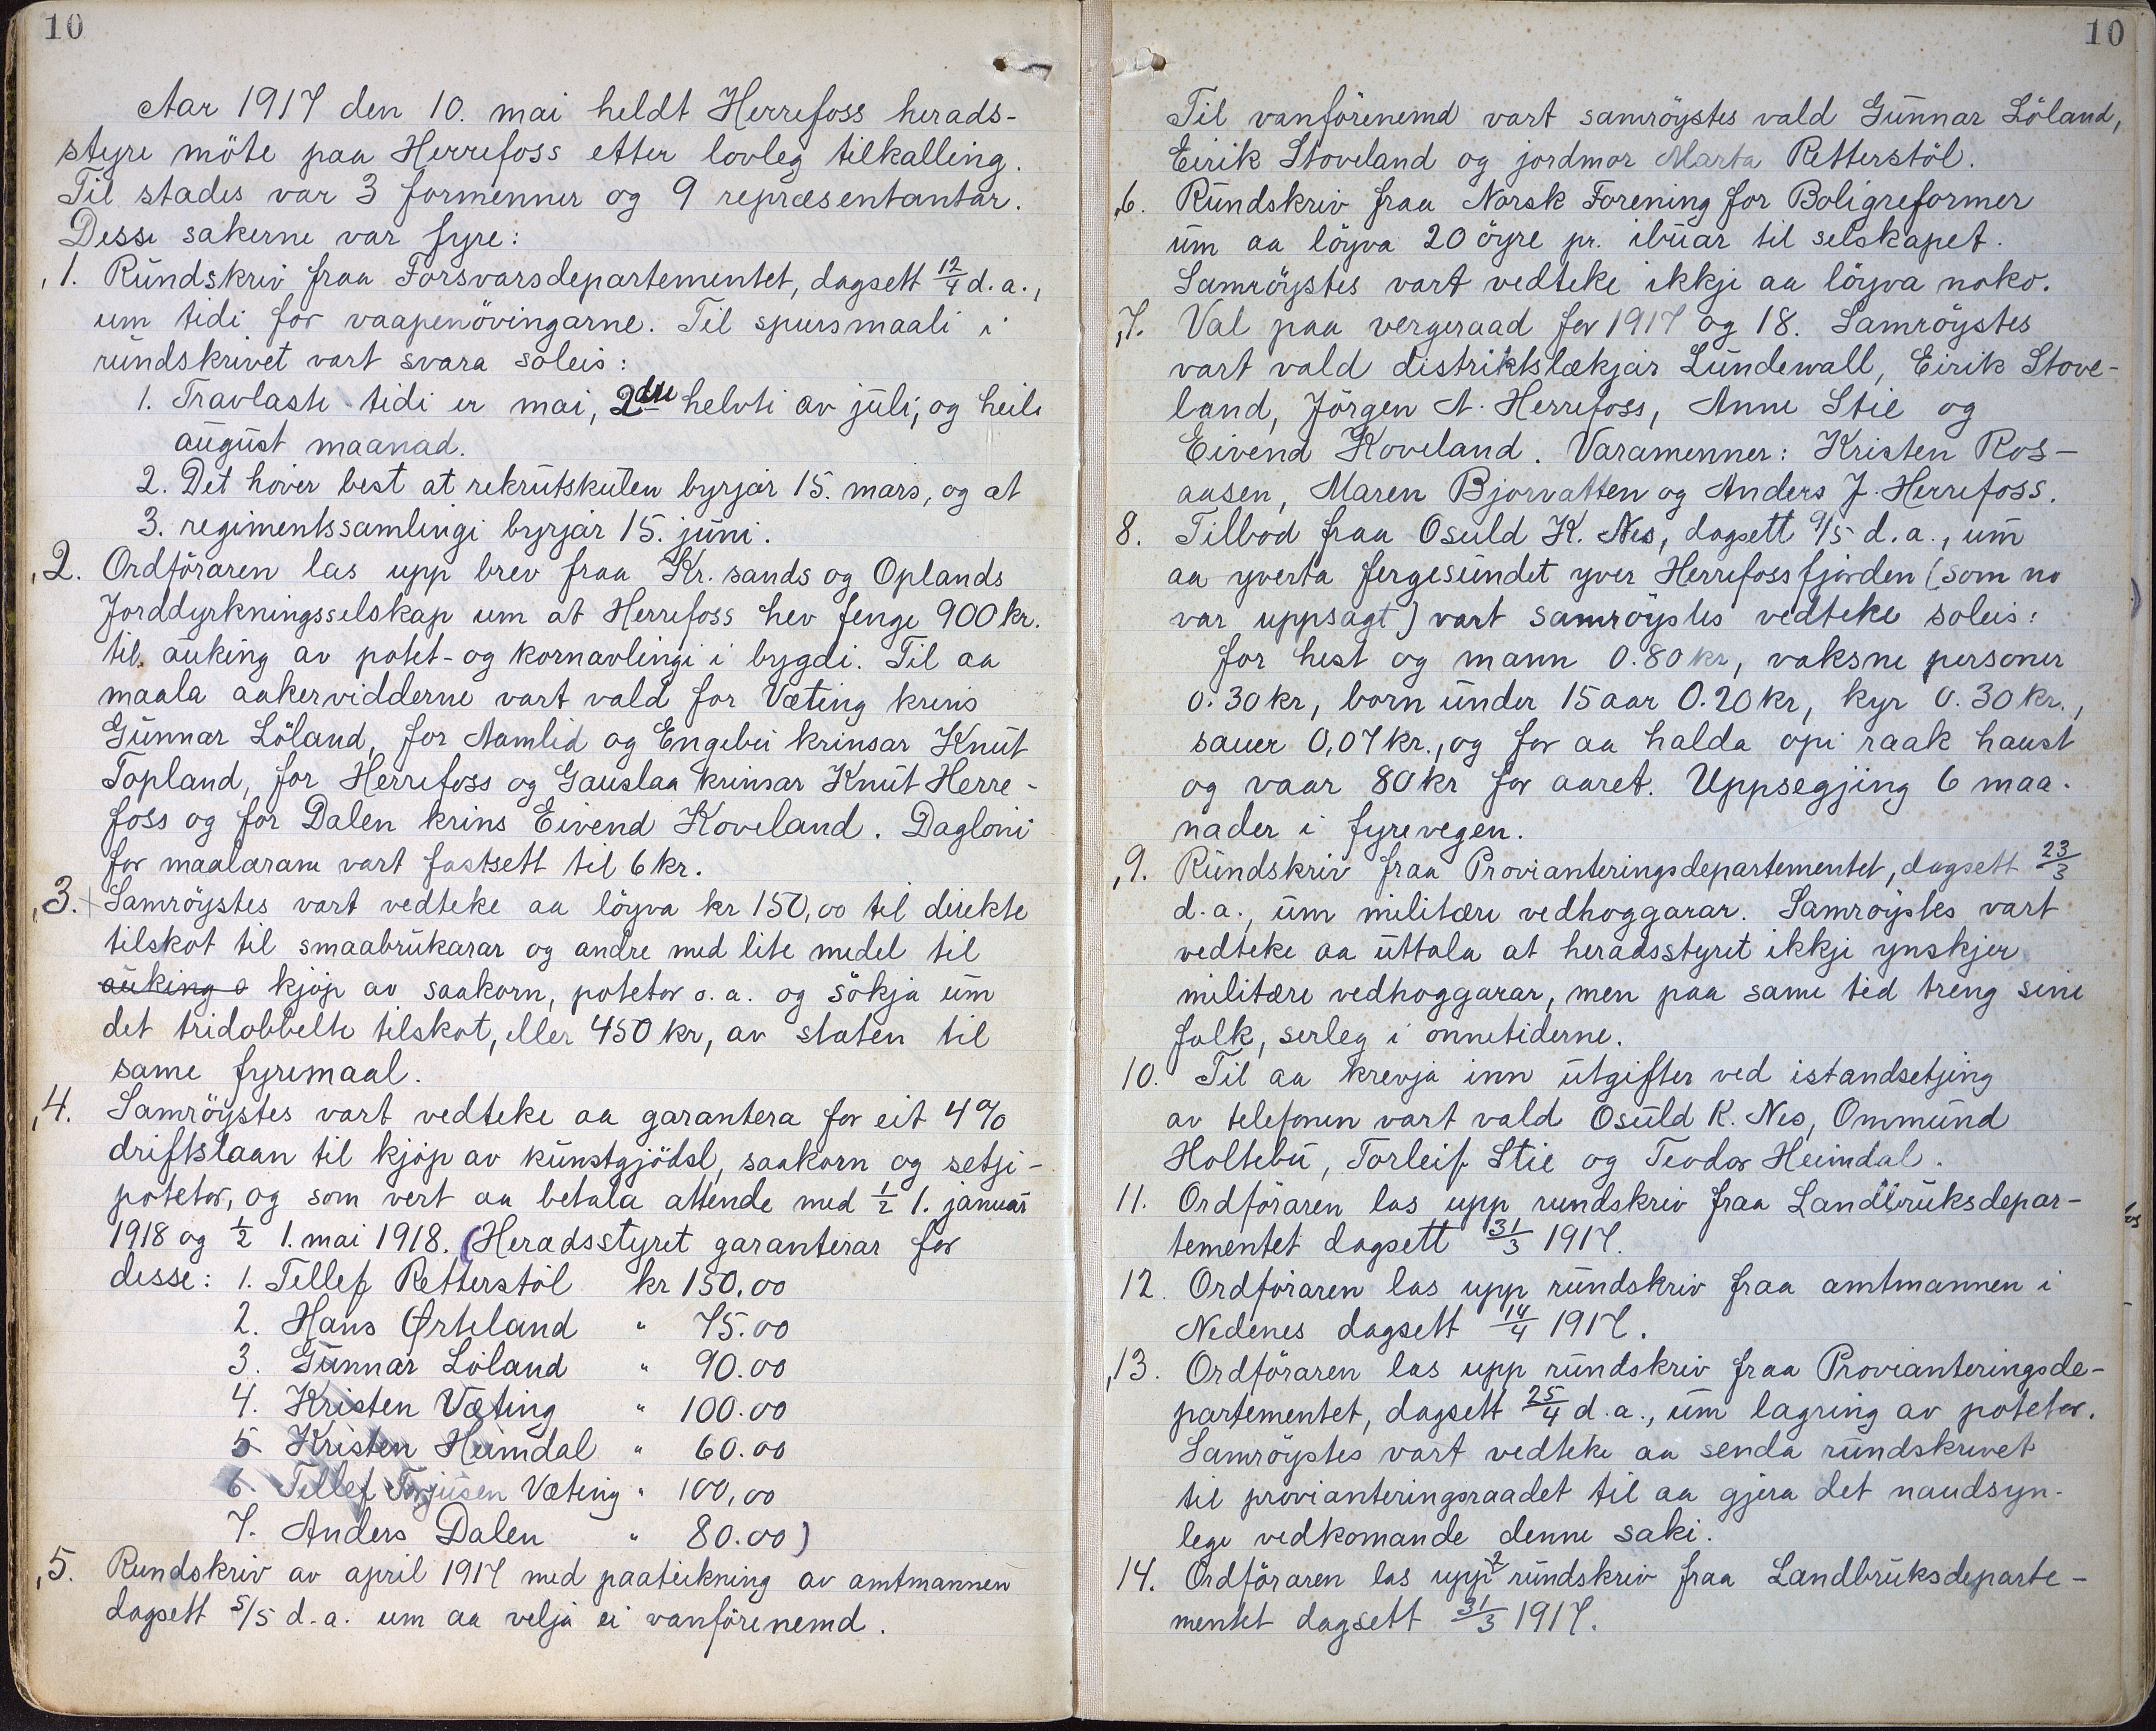 10
Aar 1917 den 10. mai heldt Herrefoss herads-
styre möte paa Herrefoss etter lovleg tilkalling.
Til stades var 3 formenner og 9 repræsentantar.
Desse sakerne var fyre:
1. Rundskriv fraa Forsvarsdepartementet, dagsett 12/4 d. a.,
um tidi for vaapenövingarne. Til spursmaali i
rundskrivet vart svara soleis:
1. Travlaste tidi er mai, 2dre helvti av juli, og heile
august maanad.
2. Det höver best at rekrutskulen byrjar 15. mars, og at
3. regimentssamlingi byrjar 15. juni.
2. Ordföraren las upp brev fraa Kr.sands og Oplands
Jorddyrkningsselskap um at Herrefoss hev fenge 900 kr.
til auking av potet- og kornavlingi i bygdi. Til aa
maala aakervidderne vart vald for Væting krins
Gunnar Löland, for Aamlid og Engebu krinsar Knut
Topland, for Herrefoss og Gauslaa krinsar Knut Herre-
foss og for Dalen krins Eivend Koveland. Dagloni
for maalarane vart fastsett til 6 kr.
3. Samröystes vart vedteke aa löyva kr 150,00 til direkte
tilskot til smaabrukarar og andre med lite medel til
auking o kjöp av saakorn, poteter o. a. og sökja um
det tridobbelte tilskot, eller 450 kr, av staten til
same fyremaal.
4. Samröystes vart vedteke aa garantera for eit 4%
driftslaan til kjöp av kunstgjödsl, saakorn og setje-
poteter, og som vert aa betala attende med 1/2 1. januar
1918 og 1/2 1. mai 1918. (Heradsstyret garanterar for
desse: 1. Tellef Retterstöl kr 150.00
2. Hans Örteland " 75.00
3. Gunnar Löland " 90.00
4. Kristen Væting " 100.00
5 Kristen Heimdal " 60.00
6 Tellef Torjusen Væting " 100,00
7. Anders Dalen " 80.00)
5. Rundskriv av april 1917 med paateikning av amtmannen
dagsett 5/5 d.a. um aa velja ei vanförenemd.
10
Til vanförenemd vart samröystes vald Gunnar Löland,
Eirik Stoveland og jordmor Marta Retterstöl.
6. Rundskriv fraa Norsk Forening for Boligreformer
um aa löyva 20 öyre pr. ibuar til selskapet.
Samröystes vart vedteke ikkje aa löyva noko.
7. Val paa vergeraad for 1917 og 18. Samröystes
vart vald distriktslækjar Lundewall, Eirik Stove-
land, Jörgen A. Herrefoss, Anne Stie og
Eivend Koveland. Varamenner: Kristen Ros-
aasen, Maren Bjorvatten og Anders J. Herrefoss.
8. Tilbod fraa Osuld K. Nes, dagsett 9/5 d. a., um
aa yverta fergesundet yver Herrefossfjorden (som no
var uppsagt) vart samröystes vedteke soleis:
for hest og mann 0.80 kr, vaksne personer
0.30 kr, born under 15 aar 0.20 kr, kyr 0.30 kr.,
sauer 0,07 kr., og for aa halda opi raak haust
og vaar 80 kr for aaret. Uppsegjing 6 maa-
nader i fyrevegen.
9. Rundskriv fraa Provianteringsdepartementet, dagsett 23/3
d. a., um militære vedhoggarar. Samröystes vart
vedteke aa uttala at heradsstyret ikkje ynskjer
militære vedhoggarar, men paa same tid treng sine
folk, serleg i onnetiderne.
10. Til aa krevja inn utgifter ved istandsetjing
av telefonen vart vald Osuld K. Nes, Ommund
Holtebu, Torleif Stie og Teodor Heimdal.
11. Ordföraren las upp rundskriv fraa Landbruksdepar-
tementet dagsett 31/3 1917.
12. Ordföraren las upp rundskriv fraa amtmannen i
Nedenes dagsett 14/4 1917.
13. Ordföraren las upp rundskriv fraa Provianteringsde-
partementet, dagsett 25/4 d. a., um lagring av poteter.
Samröystes vart vedteke aa senda rundskrivet
til provianteringsraadet til aa gjera det naudsyn-
lege vedkomande denne saki.
14. Ordföraren las upp 2 rundskriv fraa Landbruksdeparte-
mentet dagsett 31/3 1917.